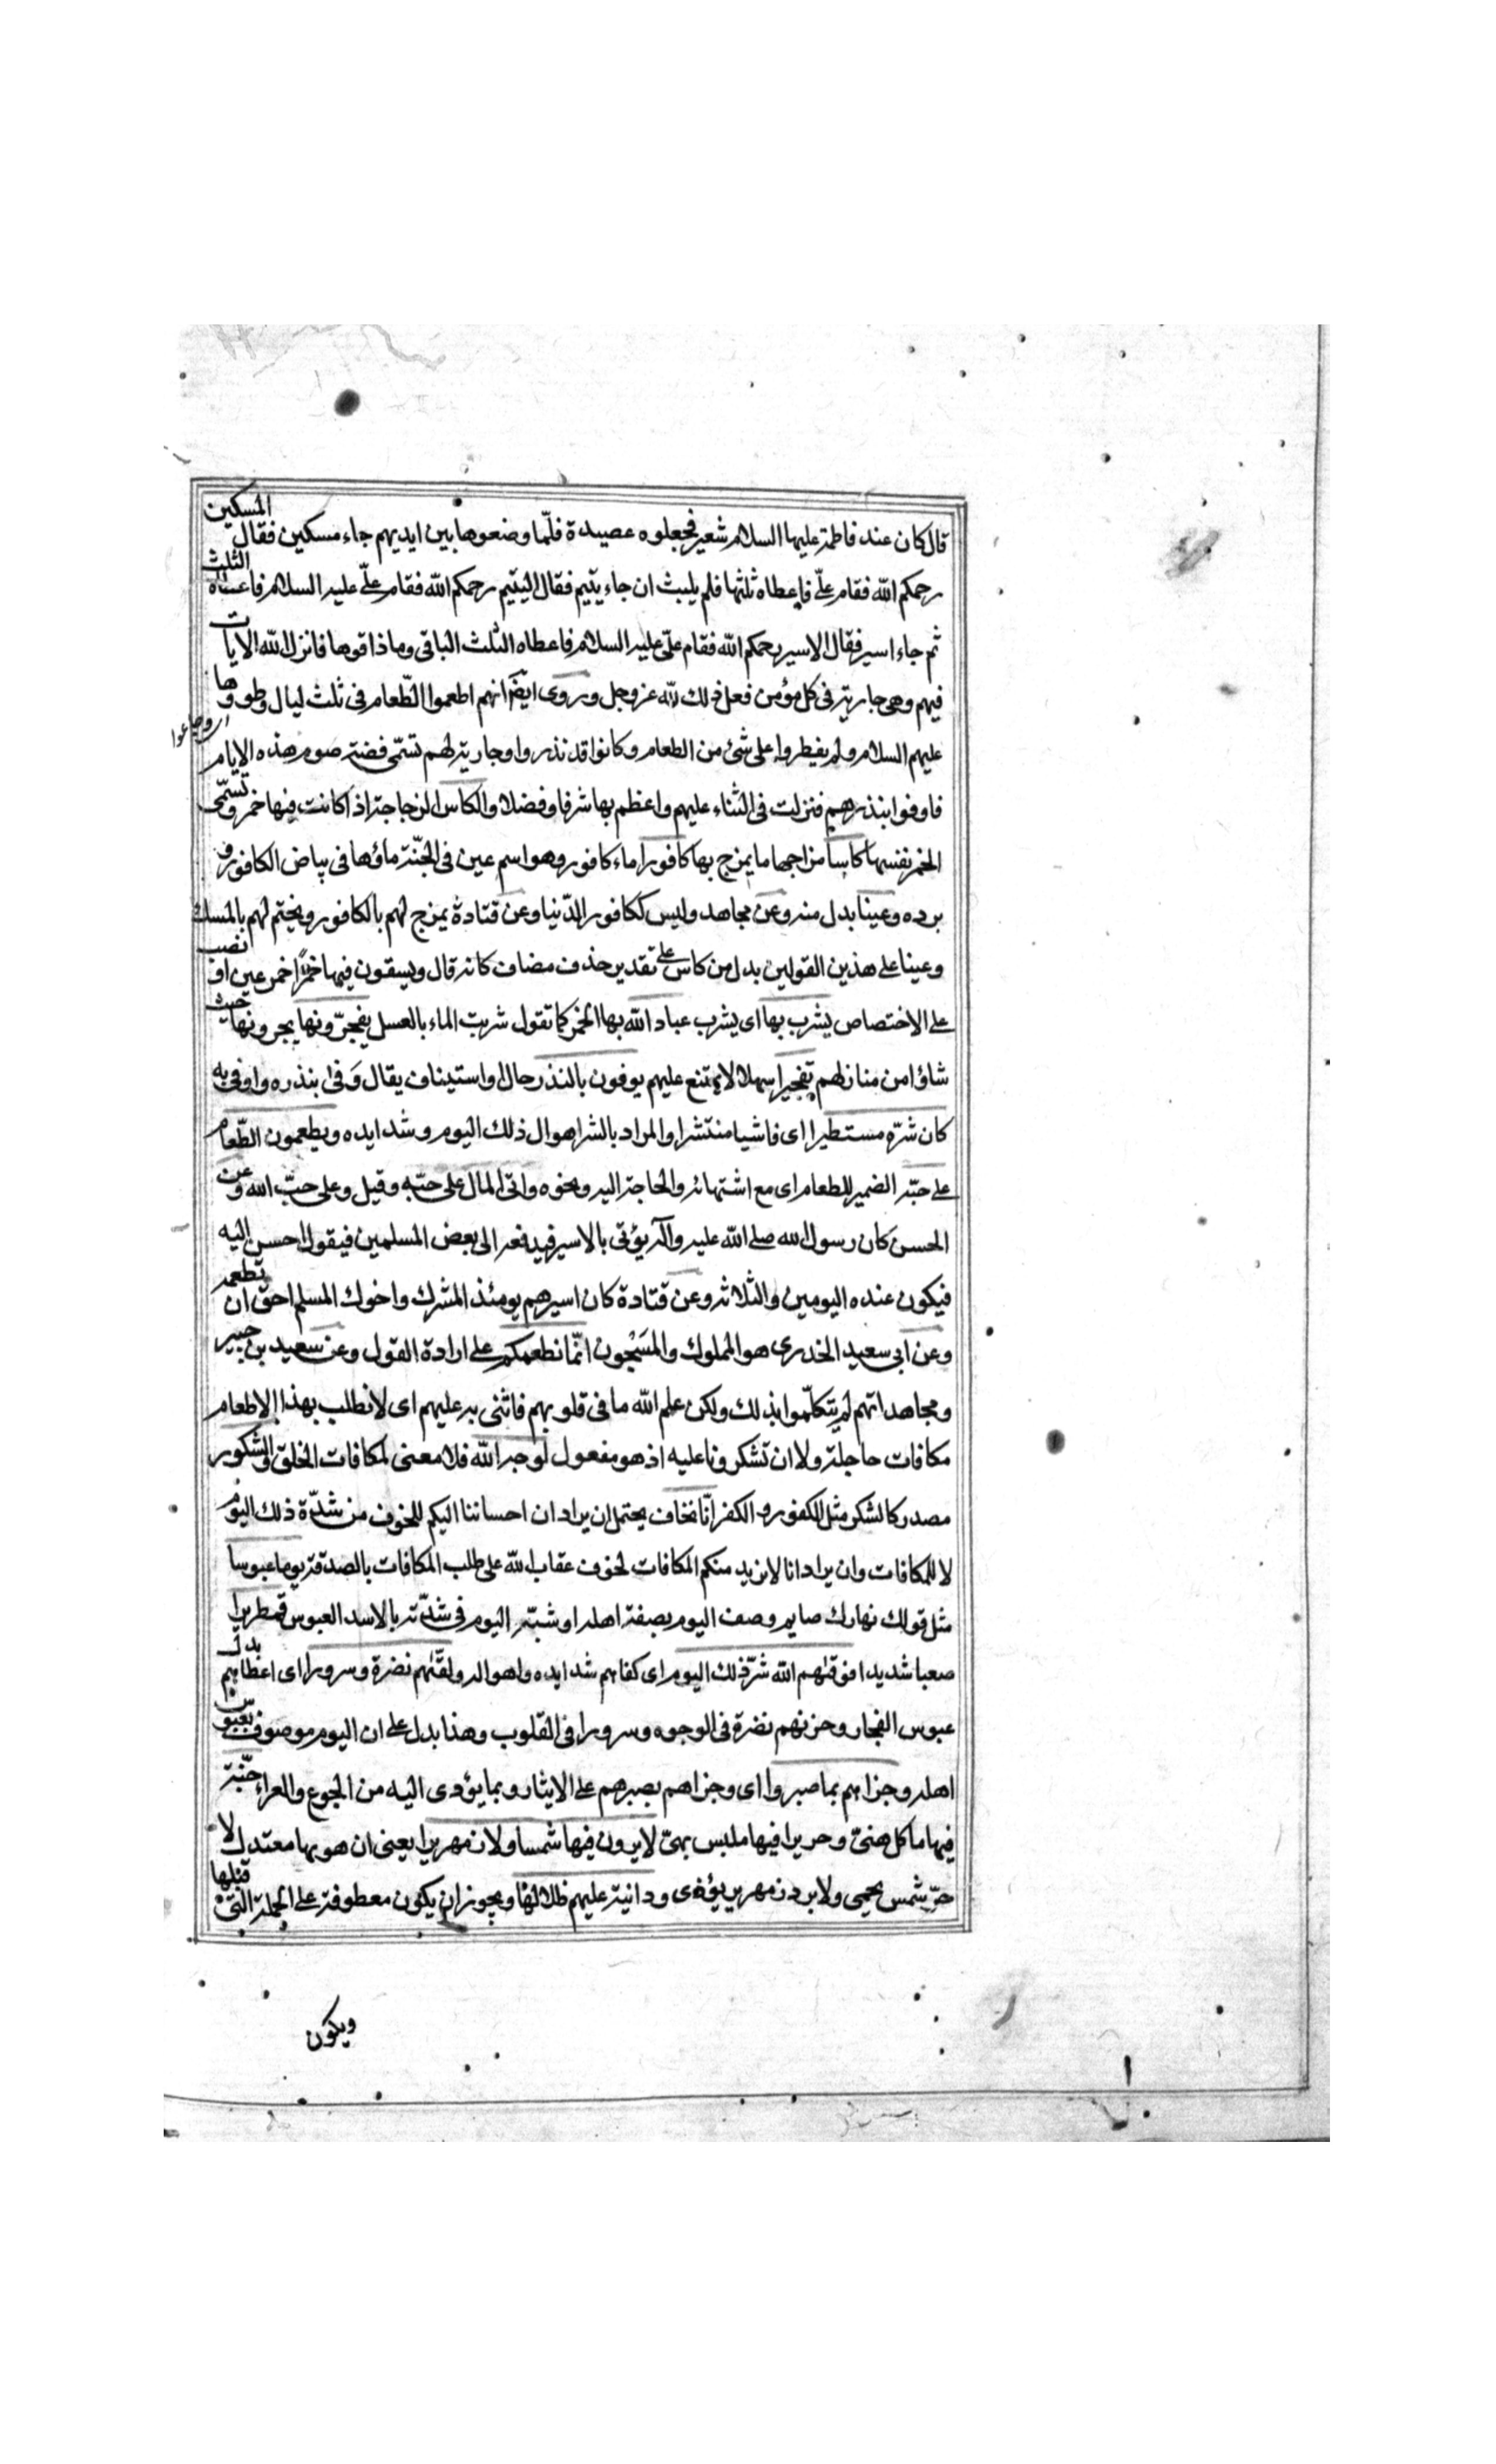 قال كان عند فاطمة عليها السلام شعير فجعلوه عصيدة فلمّا وضعوها بين ايديهم جاء مسكين فقال المسكين
رحمكم الله فقام علىّ فاعطاه ثلثها فلم يلبث ان جاء يتيم فقال اليتيم رحمكم الله فقام علىّ عليه السلام فاعطاه الثلث
ثم جاء اسير فقال الاسير رحمكم الله فقام علىّ عليه السلام فاعطاه الثلث الباقى وما ذاقوها فانزل الله الايات
فيهم وهى جارية فى كل مؤمن فعل ذلك لله عز وجل وروى ايضا انهم اطعموا الطّعام فى ثلث ليال وطووها
عليهم السلام ولم يفطروا على شئ من الطعام وكانوا قد نذروا وجارية لهم تسمّى فضة صوم هذه الايام
فاوفوا بنذرهم فنزلت فى الثناء عليهم واعظم بها شرفا وفضلا والكاس الزجاجة اذا كانت فيها خمر وتسمّى
الخمر نفسها كاسا مزاجها ما يمزج بها كافورا ماء كافور وهو اسم عين فى الجنّة ماؤها فى بياض الكافور و
برده وعينا بدل منه وعن مجاهد وليس ككافور الدّنيا وعن قتادة يمزج لهم بالكافور ويختم لهم بالمسك
وعينا على هذين القولين بدل من كاس على تقدير حذف مضاف كانه قال ويسقون فيها خمرًا خمر عين او نصب
على الاختصاص يشرب بها اى يشرب عباد الله بها الخمر كما تقول شربت الماء بالعسل يفجّرونها يجرونها حيث
شاؤا من منازلهم تفجيرا سهلا لا يمتنع عليهم يوفون بالنذر حال او استيناف يقال وَفى بنذره واوفى به
كان شرّه مستطيرا اى فاشيا منتشرا والمراد بالشر اهوال ذلك اليوم وشدايده ويطعمون الطّعام
على حبّه الضمير للطعام اى مع اشتهائه والحاجة اليه ونحوه واتى المال على حبّه وقيل وعلى حبّ الله وعن
الحسن كان رسول الله صلى الله عليه وآله يؤتى بالاسير فيدفعه الى بعض المسلمين فيقول احسن اليه
فيكون عنده اليومين والثلاثة وعن قتادة كان اسيرهم يومئذ المشرك واخوك المسلم احق ان تطعمه
وعن ابى سعيد الخدرى هو المملوك والمَسْجُون انّما نطعمكم على ارادة القول وعن سعيد بن جبير
ومجاهد انهم لم يتكلّموا بذلك ولكن علم الله ما فى قلوبهم فاثنى به عليهم اى لا نطلب بهذا الاطعام
مكافات حاجلة ولا ان تشكرونا عليه اذ هو مفعول لوجه الله فلا معنى لمكافات الخلق والشكور
مصدر كالشكر مثل الكفور و الكفر انّا نخاف يحتمل ان يراد ان احساننا اليكم للخوف من شدّة ذلك اليوم
لا للمكافات وان يراد انا لا نريد منكم المكافات لخوف عقاب الله على طلب المكافات بالصدقة يوما عبوسا
مثل قولك نهارك صايم وصف اليوم بصفة اهله او شبّه اليوم فى شدّته بالاسد العبوس قمطريرا
صعبا شديدا فوقيهم الله شرّ ذلك اليوم اى كفاهم شدايده واهواله ولقّيهم نضرة وسرورا اى اعطاهم بدل
عبوس الفجار وحزنهم نضرة فى الوجوه وسرورا فى القلوب وهذا يدل على ان اليوم موصوف بعبوس
اهله وجزاهم بما صبروا اى وجزاهم بصبرهم على الايثار وبما يؤدى اليه من الجوع والعراء جنّة
فيها ماكل هنىّ وحريرا فيها ملبس بهىّ لا يرون فيها شمسا ولا زمهريرا يعنى ان هويها معتدل لا
حرّ شمس يحمى ولا برد زمهرير يؤذى ودانية عليهم ظلالها ويجوز ان يكون معطوفة على الجملة التى قبلها
ويكون